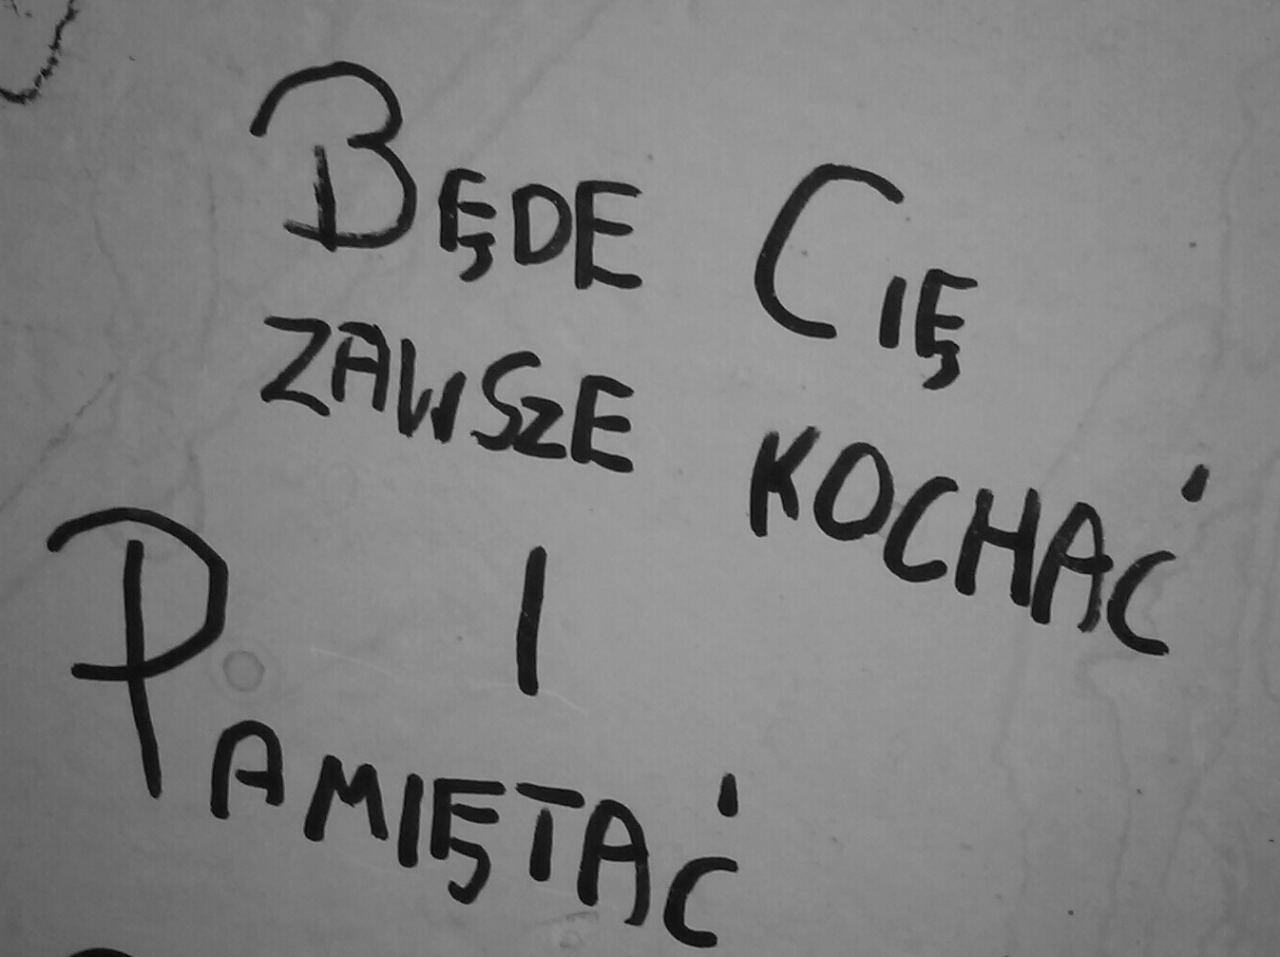 BĘDE CIĘ
ZAWSZE KOCHAĆ
I
PAMIĘTAĆ